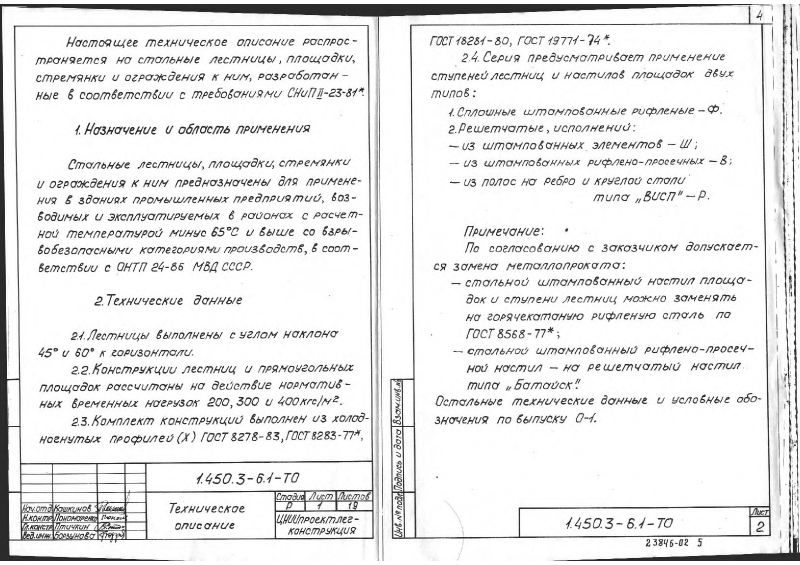 Настоящее техническое описание распрос-
траняется на стальные лестницы, площадки,
стремянки и ограждения к ним, разработан-
ные в соответствии с требованиями СНиП II-23-81*.
1. Назначение и область применения
Стальные лестницы, площадки, стремянки
и ограждения к ним предназначены для примене-
ния в зданиях промышленных предприятий, воз-
водимых и эксплуатируемых в районах с расчет-
ной температурой минус 65°С и выше со взры-
вобезопасными категориями производств, в соот-
ветствии с ОНТП 24-86 МВД СССР.
2. Технические данные
2.1. Лестницы выполнены с углом наклона
45° и 60° к горизонтали.
2.2. Конструкции лестниц и прямоугольных
площадок рассчитаны на действие норматив-
ных временных нагрузок 200, 300 и 400 кгс/м².
2.3. Комплект конструкций выполнен из холод-
ногнутых профилей (Х) ГОСТ 8278-83, ГОСТ 8283-77*,
1.450.3-6.1-ТО
Нач.отд. Кашкинов
Н.контр. Пономаренко
Гл.констр. Птичкин
Вед.инж. Борзунова
Техническое
описание
Стадия Лист Листов
Р 1 19
ЦНИИпроектлег-
конструкция
4
ГОСТ 18281-80, ГОСТ 19771-74*.
2.4. Серия предусматривает применение
ступеней лестниц и настилов площадок двух
типов:
1. Сплошные штампованные рифленые - Ф.
2. Решетчатые, исполнений:
- из штампованных элементов - Ш;
- из штампованных рифлено-просечных - В;
- из полос на ребро и круглой стали
типа „ВИСП" - Р.
Примечание:
По согласованию с заказчиком допускает-
ся замена металлопроката:
- стальной штампованный настил площа-
док и ступени лестниц можно заменять
на горячекатаную рифленую сталь по
ГОСТ 8568-77*;
- стальной штампованный рифлено-просеч-
ной настил - на решетчатый настил
типа „Батайск".
Остальные технические данные и условные обо-
значения по выпуску 0-1.
Инв.№ подл. Подпись и дата Взам.инв.№
1.450.3-6.1-ТО
Лист
2
23846-02 5